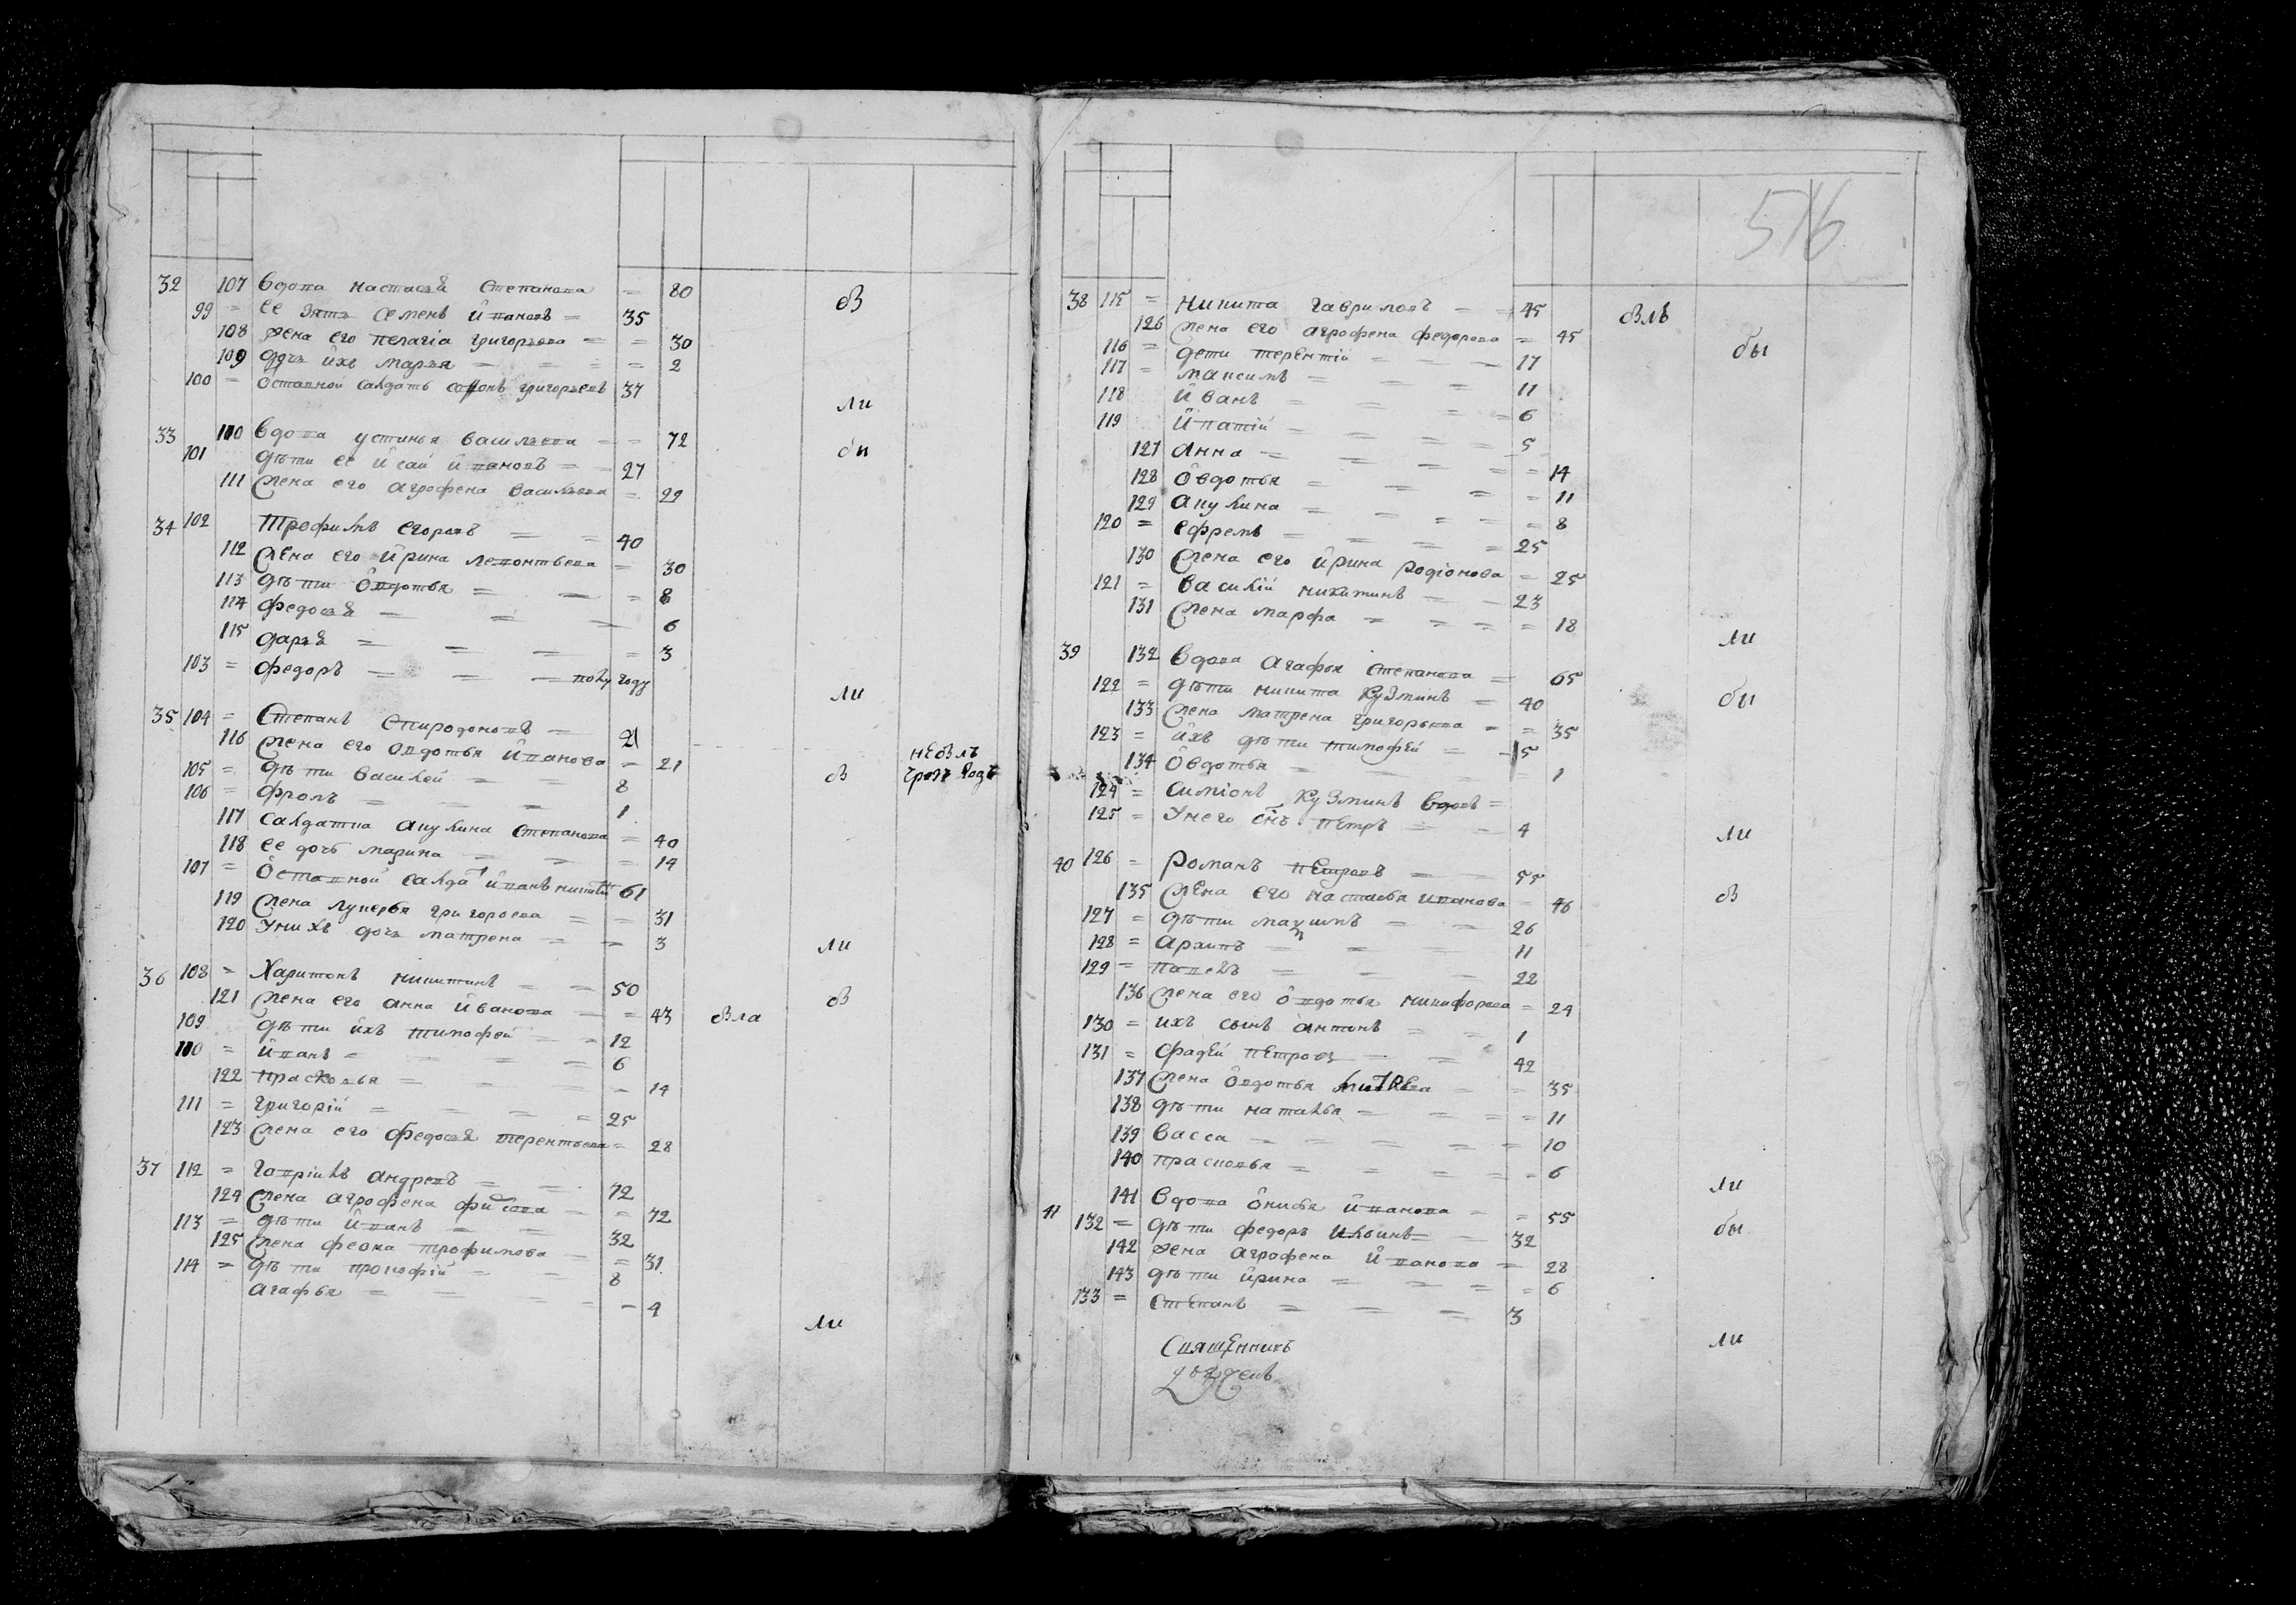 32 107 вдова настасья степанова = 80
99 = ее зять семенъ ивановъ = 35 об
108 жена его пелагіа григорьева = = 30
109 дочь ихъ марья = = = = 2
100 = оставной салдатъ софонъ григорьевъ 37
ли
33 110 вдова устинья васильева = = 72
101 дѣти ее исаи ивановъ = = 27 бы
111 жена его агрофена васильева = 29
34 102 трофимъ егоровъ = = 40
112 жена его ирина левонтьева = 30
113 дѣти овдотья = = = 8
114 федосья = = = 6
115 дарья = = = = 3
103 = федоръ = = = полугоду
ли
35 104 = степанъ спиродоновъ = 21
116 жена его овдотья иванова = 21
105 = дѣти василей = = 8 об
106 = фролъ = = = 1
117 салдатка акулина степанова = 40
118 ее дочь марина = = = 14
107 = оставной салдатъ иванъ никитинъ 61
119 жена лукерья григорьева = = 31
120 у нихъ дочь матрена = = 3
ли
36 108 = харитонъ никитинъ = = 50
121 жена его анна иванова = = 43 об
109 дѣти ихъ тимофей = = 12
110 = иванъ = = = = 6
122 прасковья = = = = 14
111 = григорій = = = = 25
123 жена его федосья терентьева = 28
37 112 = гавріилъ андреевъ = = 72
124 жена агрофена = = 72
113 = дѣти иванъ = = 32
125 жена фекла трофимова = = 31
114 = дѣти прокофій = = 8
агафья = = = = 4
ли
516
38 115 = никита гавриловъ = = 45
126 жена его агрофена федорова = 45
116 = дети терентій = = = 17 бы
117 = максимъ = = = = 11
118 иванъ = = = = 6
119 ипатій = = = = 5
127 анна = = = = = 14
128 овдотья = = = = 11
129 акулина = = = = 8
120 = ефремъ = = = = 25
130 жена его ирина родіонова = 25
121 = василій никитинъ = = 23
131 жена марфа = = = = 18
ли
39 132 вдова агафья степанова = 65
122 = дѣти никита кузминъ = 40 бы
133 жена матрена григорьева = = 35
123 = ихъ дѣти тимофей = = 15
134 овдотья = = = = 1
124 = симіонъ кузминъ вдовъ =
125 = у него снъ петръ = = 4
ли
40 126 = романъ петровъ = = 55
135 жена его настасья иванова = 46 об
127 = дѣти максимъ = = 26
128 = архипъ = = = 11
129 = павелъ = = = 22
136 жена его овдотья никифорова = 24
130 = ихъ сынъ антонъ = = 1
131 = фадей петровъ = = 42
137 жена овдотья = = 35
138 дѣти наталья = = = = 11
139 васса = = = = = 10
140 прасковья = = = = 6
ли
41 141 вдова онисья иванова = = 55
132 = дѣти федоръ ильинъ = = 32 бы
142 жена агрофена иванова = 28
143 дѣти ирина = = = = 6
133 = степанъ = = = 3
ли
священникъ